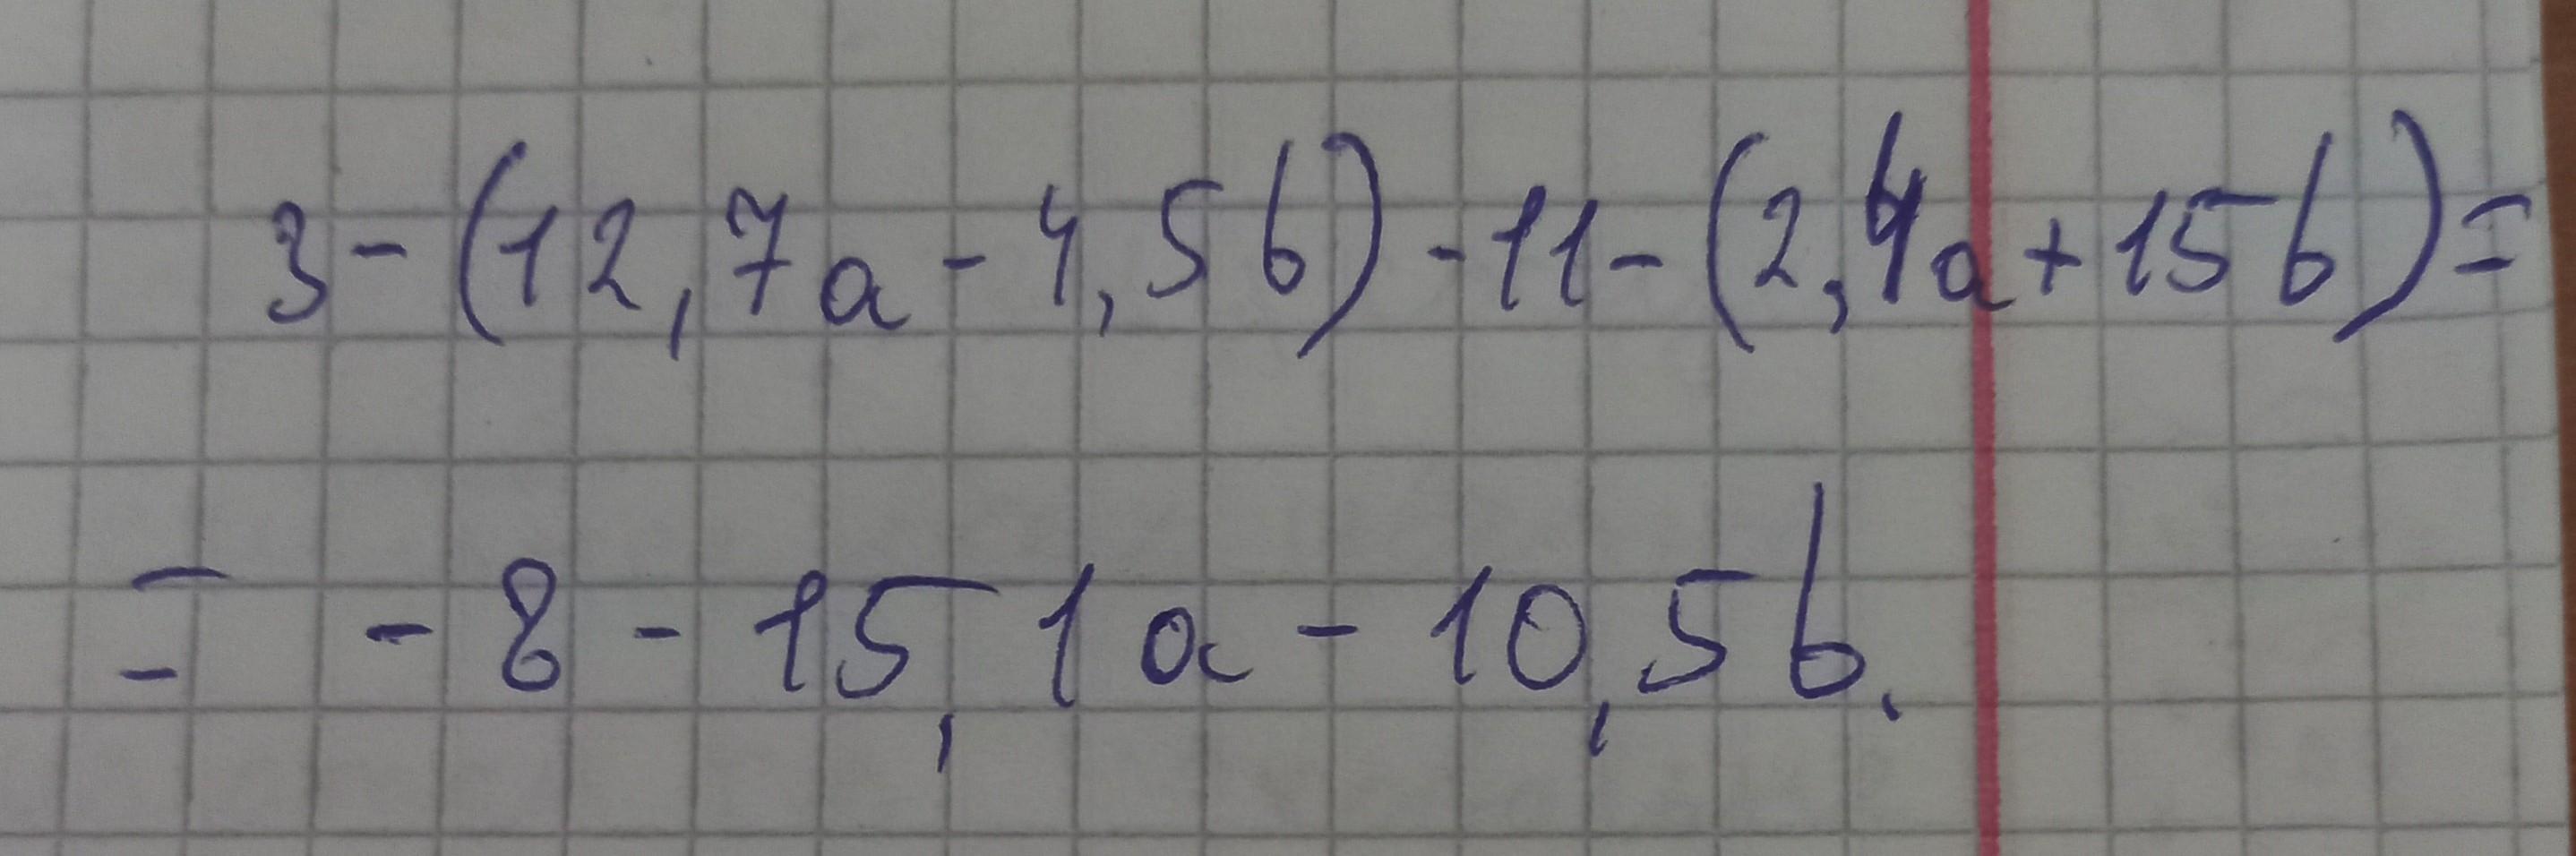 3-(12,7a-4,5b)-11-(2,4a+15b)=
= -8-15,1a-10,5b.